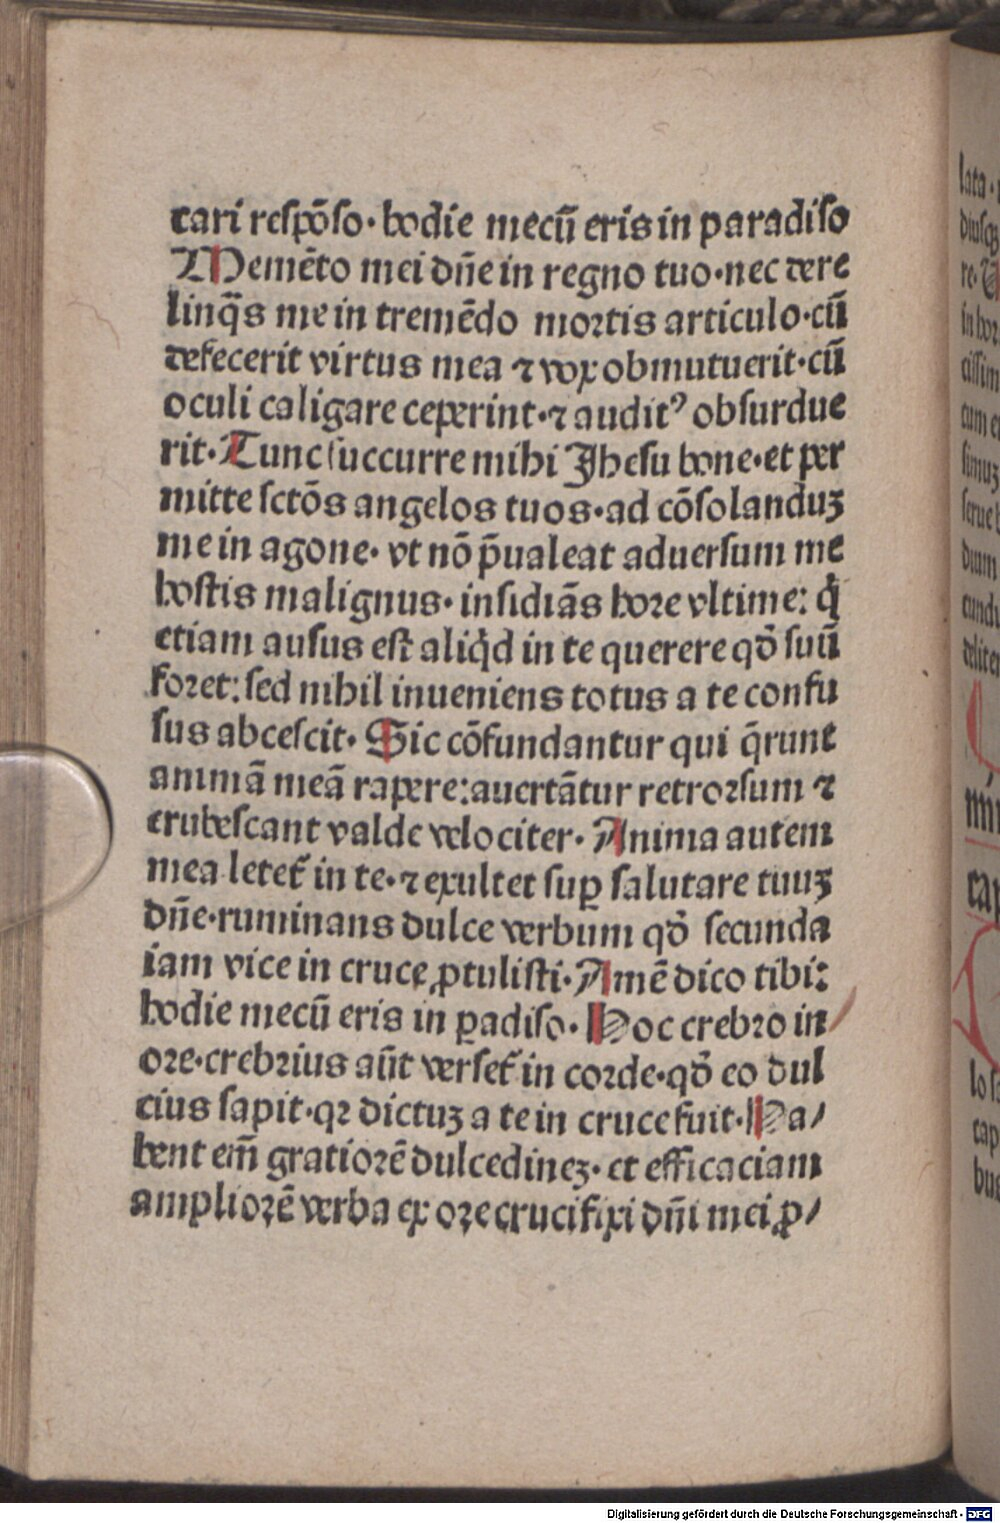 cari respōso· hodie mecū eris in paradiso
Memēto mei dñe in regno tuo·nec dere
linq̄s me in tremēdo mortis articulo·cū
defecerit virtus mea ⁊ vox obmutuerit·cū
oculi caligare ceperint·⁊ auditꝰ obsurdue
rit· Tunc succurre mihi Jhesu bone·et per
mitte sctōs angelos tuos·ad cōsolanduꝫ
me in agone· vt nō p̄ualeat aduersum me
hostis malignus· insidiās hore vltime: q̇
etiam ausus est aliq̇d in te querere qđ suū
foret: sed nihil inueniens totus a te confu
sus abcescit· Sic cōfundantur qui q̄runt
animā meā rapere: auertātur retrorsum ⁊
erubescant valde velociter· Anima autem
mea letet᷑ in te·⁊ exultet suꝑ salutare tuuꝫ
dñe·ruminans dulce verbum qđ secunda
iam vice in cruce ꝓtulisti· Amē dico tibi:
hodie mecū eris in ꝑadiso· Hoc crebro in
ore·crebrius aūt verset᷑ in corde·qđ eo dul
cius sapit·qꝛ dictuꝫ a te in cruce fuit· Ha/
bent em̄ gratiorē dulcedineꝫ· et efficaciam
ampliorē verba ex ore crucifixi dñi mei ꝓ/
lata·
re·
Digitalisierung gefördert durch die Deutsche Forschungsgemeinschaft · DFG